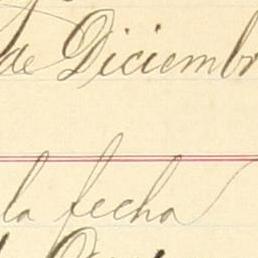 de Diciembr
la fecha